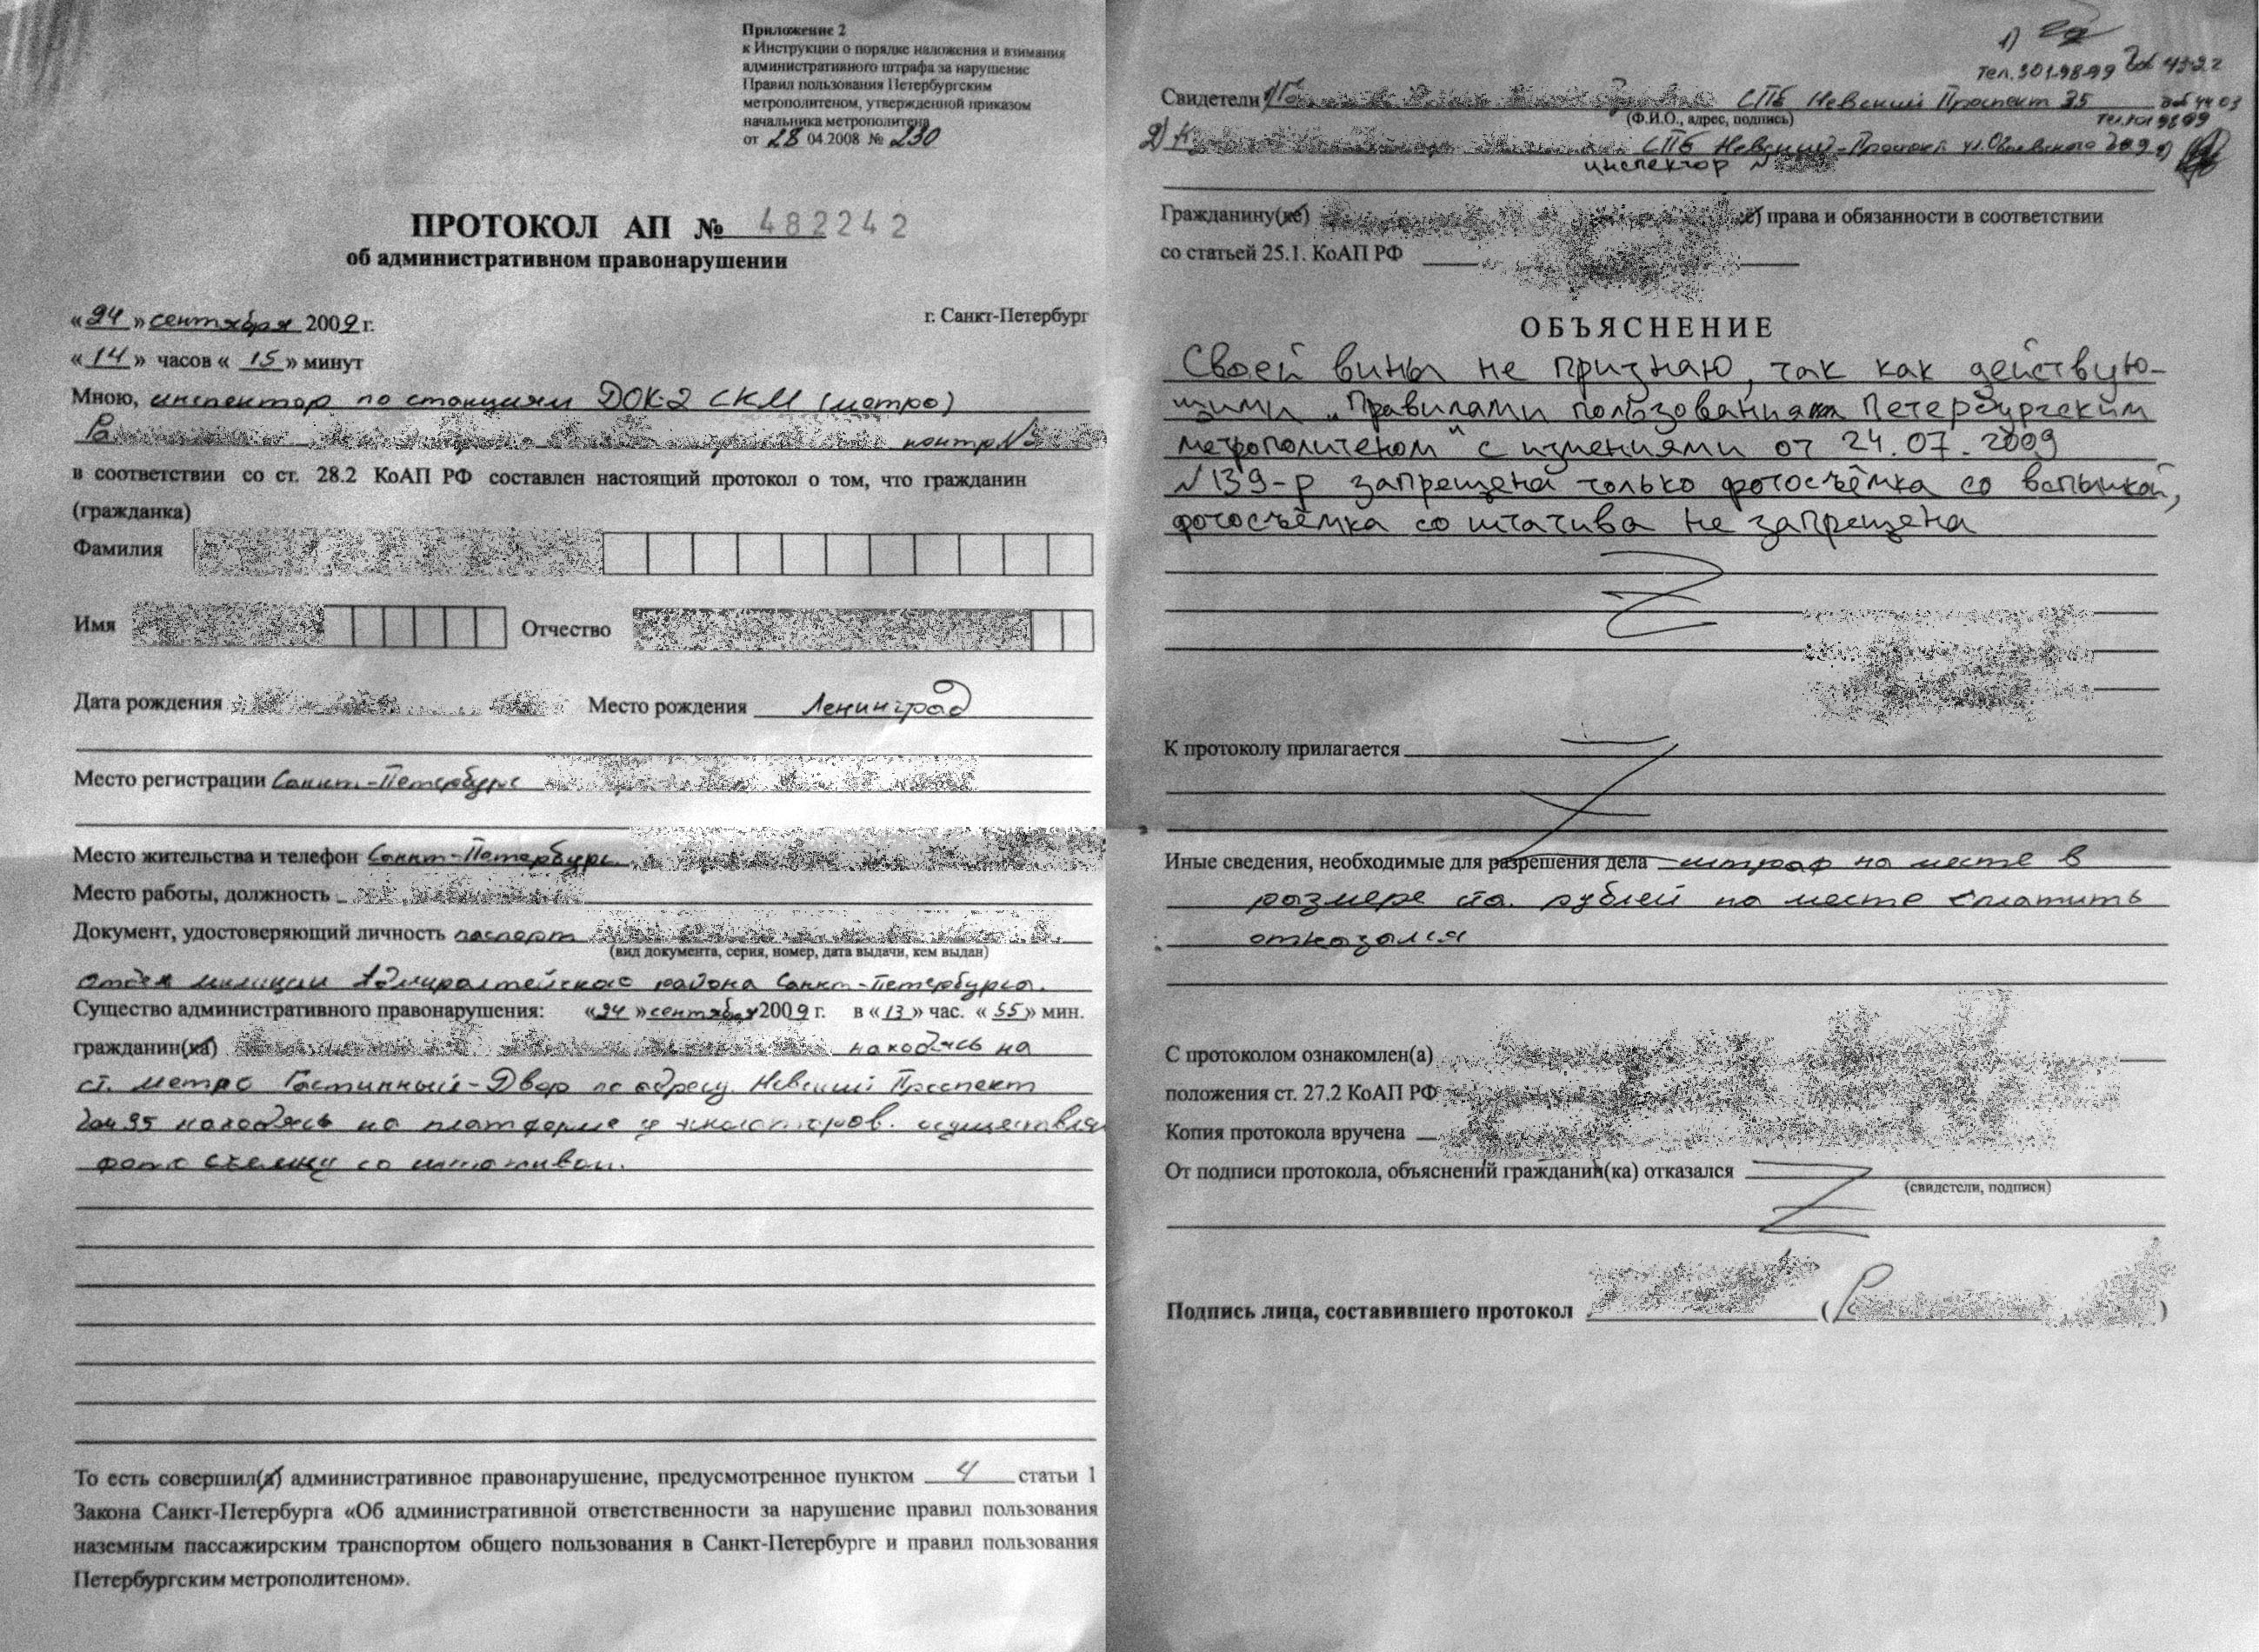 Приложение 2
к Инструкции о порядке наложения и взимания
административного штрафа за нарушение
Правил пользования Петербургским
метрополитеном, утвержденной приказом
начальника метрополитена
от 28 04.2008 № 230
ПРОТОКОЛ АП № 482242
об административном правонарушении
«24» сентября 2009 г. г. Санкт-Петербург
«14» часов «15» минут
Мною, инспектор по станциям ДОК-2 СКМ (метро)
контр №
в соответствии со ст. 28.2 КоАП РФ составлен настоящий протокол о том, что гражданин
(гражданка)
Фамилия
Имя Отчество
Дата рождения Место рождения Ленинград
Место регистрации Санкт-Петербург
Место жительства и телефон Санкт-Петербург
Место работы, должность
Документ, удостоверяющий личность паспорт
(вид документа, серия, номер, дата выдачи, кем выдан)
отдел милиции Адмиралтейского района Санкт-Петербурга.
Существо административного правонарушения: «24» сентября 2009 г. в «13» час. «55» мин.
гражданин(ка) находясь на
ст. метро Гостинный-Двор по адресу Невский Проспект
дом 35 находясь на платформе у осуществлял
фото съемку со штативом.
То есть совершил(а) административное правонарушение, предусмотренное пунктом 4 статьи 1
Закона Санкт-Петербурга «Об административной ответственности за нарушение правил пользования
наземным пассажирским транспортом общего пользования в Санкт-Петербурге и правил пользования
Петербургским метрополитеном».
1)
тел. 301-98-99 доб 4322
Свидетели 1) СПб Невский Проспект 35 доб 4403
(Ф.И.О., адрес, подпись)
2) СПб Невский-Проспект
инспектор №
Гражданину(ке) права и обязанности в соответствии
со статьей 25.1. КоАП РФ
ОБЪЯСНЕНИЕ
Своей вины не признаю, так как действую-
щими „Правилами пользования Петербургским
метрополитеном" с измениями от 24.07.2009
№139-р запрещена только фотосъёмка со вспышкой,
фотосъёмка со штатива не запрещена
К протоколу прилагается
Иные сведения, необходимые для разрешения дела штраф на месте в
размере сто. рублей на месте оплатить
отказался
С протоколом ознакомлен(а)
положения ст. 27.2 КоАП РФ
Копия протокола вручена
От подписи протокола, объяснений гражданин(ка) отказался
(свидетели, подписи)
Подпись лица, составившего протокол ( )